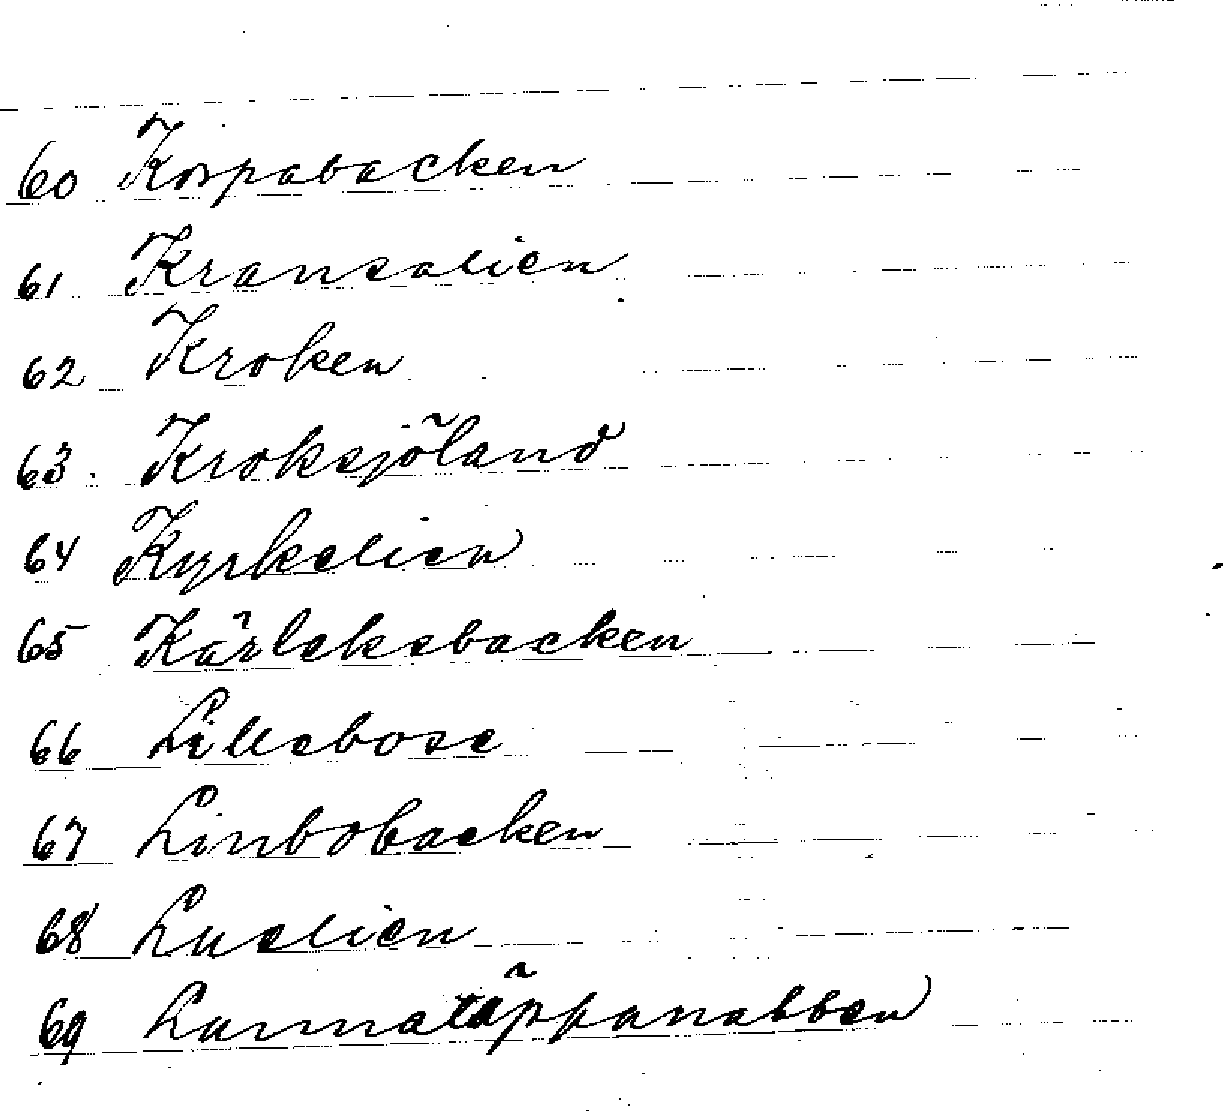 60 Korpabacken
61 Kransalien
62 Kroken
63. Kroksjöland
64 Kyrkelien
65 Kärleksbacken
66 Lillebose
67 Linbobacken
68 Luelien
69 Lunnatäppanabben